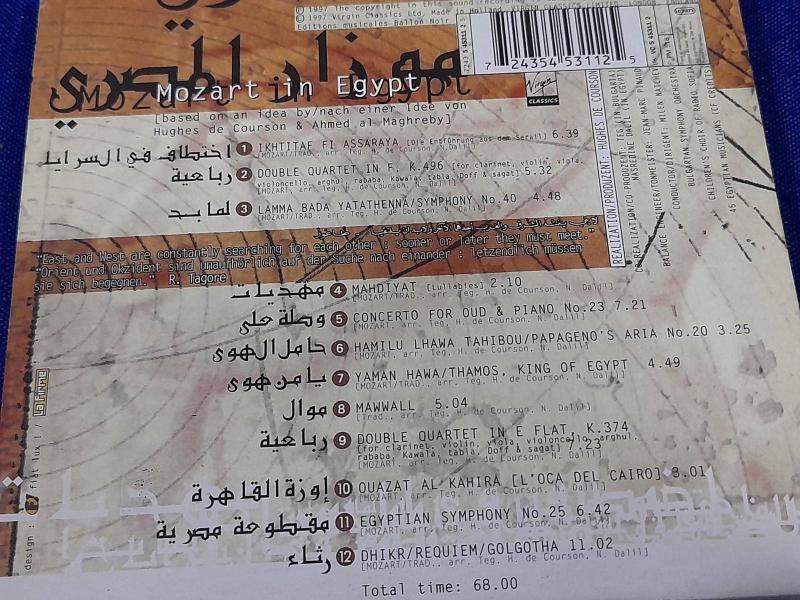 ℗ 1997 The copyright in this sound recording is
© 1997 Virgin Classics Ltd. Made in Holland. VIRGIN CLASSICS LIMITED
Editions musicales Ballon Noir
7 24354 53112 5
موزار المصري
Mozart in Egypt
Virgin
CLASSICS
[based on an idea by/nach einer Idee von
Hughes de Courson & Ahmed al Maghreby]
اختطاف في السرايا 1 IKHTITAF FI ASSARAYA [Die Entführung aus dem Serail] 6.39
رباعية 2 DOUBLE QUARTET IN F, K.496 [for clarinet, violin, viola,
violoncello, arghul, rababa, Kawala, tabla, Doff & sagat] 5.32
[MOZART, arr. Teg, H. de Courson, N. Dalil]
لما بد 3 LAMMA BADA YATATHENNA/SYMPHONY No.40 4.48
[MOZART/TRAD., arr. Teg, H. de Courson, N. Dalil]
"East and West are constantly searching for each other : sooner or later they must meet."
"Orient und Okzident sind unaufhörlich auf der Suche nach einander : letzendlich müssen
sie sich begegnen." R. Tagore
مهديات 4 MAHDIYAT [Lullabies] 2.10
[MOZART/TRAD., arr. Teg, H. de Courson, N. Dalil]
وصلة على 5 CONCERTO FOR OUD & PIANO No.23 7.21
[MOZART, arr. Teg, H. de Courson, N. Dalil]
حامل الهوى 6 HAMILU LHAWA TAHIBOU/PAPAGENO'S ARIA No.20 3.25
[MOZART/TRAD., arr. Teg, H. de Courson, N. Dalil]
يا من هوى 7 YAMAN HAWA/THAMOS, KING OF EGYPT 4.49
[MOZART/TRAD., arr. Teg, H. de Courson, N. Dalil]
موال 8 MAWWALL 5.04
[Trad., arr. Teg, H. de Courson, N. Dalil]
رباعية 9 DOUBLE QUARTET IN E FLAT, K.374
[for clarinet, violin, viola, violoncello, arghul,
rababa, Kawala, tabla, Doff & sagat] 7.23
[MOZART, arr. Teg, H. de Courson, N. Dalil]
إوزة القاهرة 10 OUAZAT AL KAHIRA [L'OCA DEL CAIRO] 8.01
[MOZART/TRAD., arr. Teg, H. de Courson, N. Dalil]
مقطوعة مصرية 11 EGYPTIAN SYMPHONY No.25 6.42
[MOZART/TRAD., arr. Teg, H. de Courson, N. Dalil]
رثاء 12 DHIKR/REQUIEM/GOLGOTHA 11.02
[MOZART/TRAD., arr. Teg, H. de Courson, N. Dalil]
Total time: 68.00
REALIZATION/PRODUZENT: HUGHES DE COURSON
CO-REALIZATION/CO-PRODUZENT: TEG [IN BULGARIA]
NASREDINE DALIL [IN EGYPT]
BALANCE ENGINEER/TONMEISTER: JEAN-MARC PINAUD
CONDUCTOR/DIRIGENT: MILEN NATCHEV
BULGARIAN SYMPHONY ORCHESTRA
CHILDREN'S CHOIR OF RADIO SOFIA
45 EGYPTIAN MUSICIANS [CF CREDITS]
design : flat lux ! /